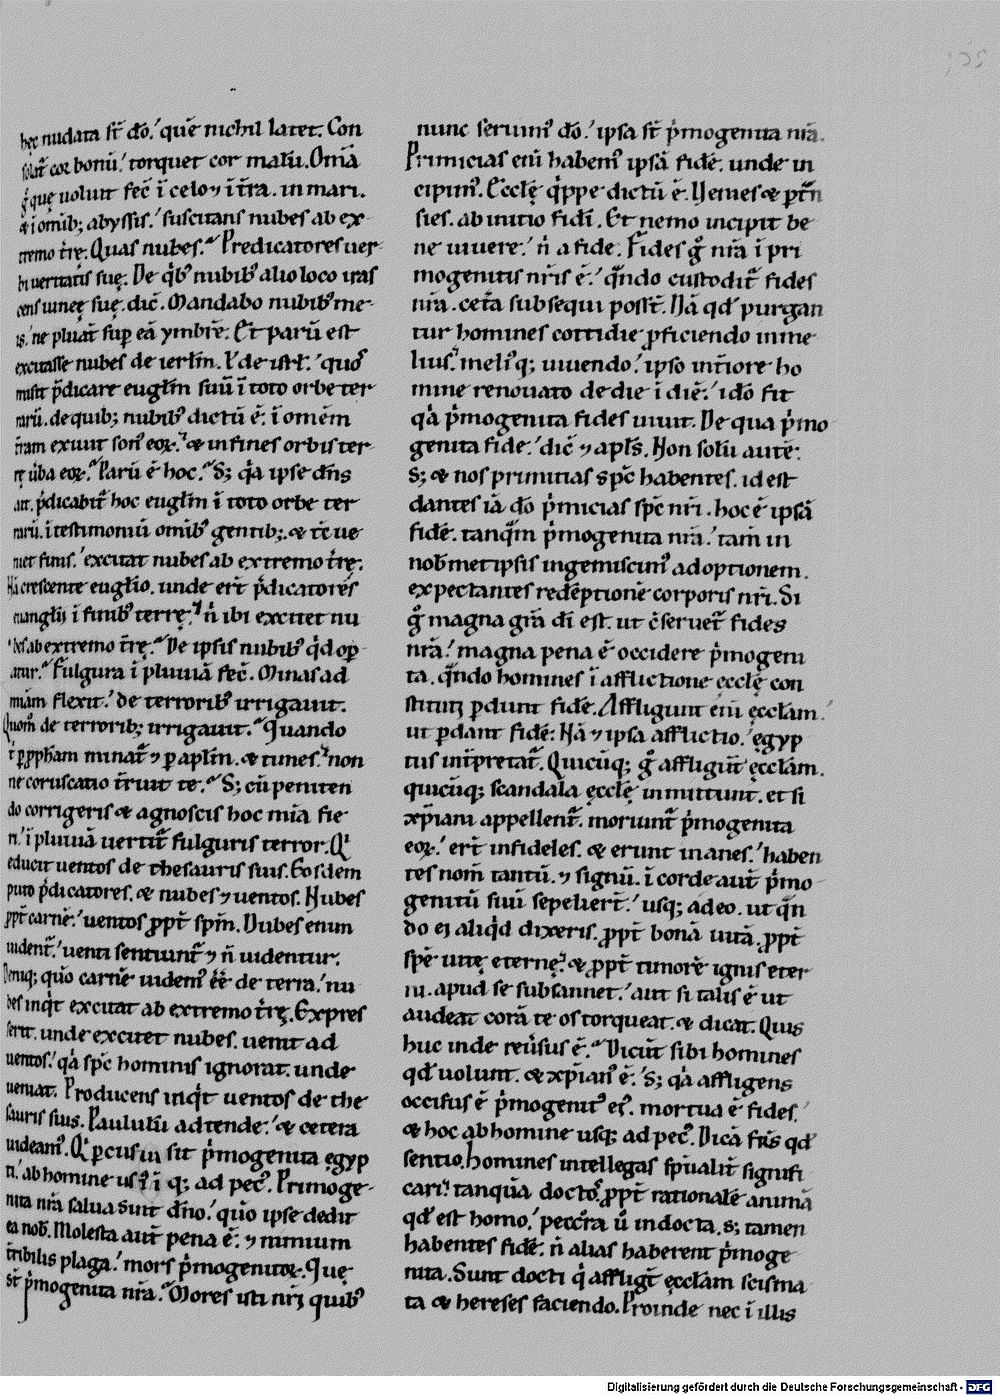 hęc nudata st̄ dō. que nichil latet. Con
solat̄ cor bonū. torquet cor malū. Om̄ia
g̊ quę uoluit fec̄ ī celo ⁊ ī tr̄a. in mari.
& ī omib; abyssis. suscitans nubes ab ex-
tremo tr̄ę. Quas nubes. Predicatores uer-
bi ueritatis suę. De qͥb᷒ nubib᷒ alio loco iras
cens uineę suę. dic̄. Mandabo nubib᷒ me-
is. ne pluat̄ sup eā ymbrē. Et parū est
excitasse nubes de ierłm. ł de isrł. quos
misit p̄dicare eugłm suū ī toto orbe ter
rarū. de quib; nubib᷒ dictū ē. ī omēm
tr̄am exiuit son᷒ eoꝝ. & in fines orbis ter-
rę ūba eoꝝ. Parū ē hoc. S; qͥa ipse dn̄s
ait. p̄dicabit̄ hoc eugłm ī toto orbe ter
rarū. ī testimoniū omib᷒ gentib;. & tc̄ ue
niet finis. excitat nubes ab extremo tr̄ę.
Nā crescente eugłio. unde ert̄ p̄dicatores
euanglij ī finib᷒ terrę. n̄ ibi excitet nu
bes ab extremo tr̄ę. De ipsis nubib᷒ qͥd op-
atur. Fulgura ī pluuiā fec̄. Minas ad
miām flexit. de terrorib᷒ irrigauit.
Quom̊ de terrorib; irrigauit. Quando
t̄ ꝑ ꝓpham minat̄ ⁊ ꝑ apłm. & times. non
ne coruscatio tr̄uit te. S; cū peniten
do corrigeris & agnoscis hoc miā fie
ri. ī pluuiā uertit̄ fulguris terror. Qͥ
educit uentos de thesauris suis. Eosdem
puto p̄dicatores. & nubes ⁊ uentos. Nubes
ꝓpt̄ carnē. uentos ꝓpt̄ spm̄. Nubes enim
uident̄. uenti sentiunt̄ ⁊ n̄ uidentur.
Deniq; quō carnē uidem᷒ ēē de terra. nu
bes inqͥt excitat ab extremo tr̄ę. Expres
serit. unde excitet nubes. uenit ad
uentos. qͥa spc̄ hominis ignorat. unde
ueniat. Producens inqͥt uentos de the
sauris suis. Paululū adtende. & cetera
uideam᷒. Qͥ percusit pͥmogenita ęgyp
ti. ab homine usq; ad pec᷒. Primoge-
nita nr̄a salua sunt dn̄o. quō ipse dedit
ea nob᷒. Molesta aut̄ pena ē. ⁊ nimium
tr̄ibilis plaga. mors pͥmogenitoꝝ. Quę
st̄ pͥmogenita nr̄a. Mores isti nr̄i quib᷒
nunc seruim᷒ dō. ipsa st̄ pͥmogenita nr̄a.
Primicias enī habem᷒ ipsā fidē. unde in
cipim᷒. Ecclę qͥppe dictū ē. Uenies & ptn̄
sies. ab initio fidī. Et nemo incipit be
ne uiuere. n̄ a fide. Fides g̊ nr̄a ī pri
mogenitis nr̄is ē. qn̄do custodit̄ fides
nr̄a. cet̄a subsequi poss̄t. Nā qd̄ purgan
tur homines cottidie ꝓficiendo in me
lius. meli᷒q; uiuendo. ipso int̄iore ho
mine renouato de die ī diē. idō fit
qͥa pͥmogenita fides uiuit. De qua pͥmo
genita fide. dic̄ ⁊ apłs. Non solū autē.
S; & nos primitias spc̄ habentes. id est
dantes iā dō pͥmicias spc̄ nr̄i. hoc ē ipsā
fidē. tanqͣm pͥmogenita nr̄a. tam̄ in
nob᷒metipsis ingemiscim᷒ adoptionem.
expectantes redēptionē corporis nr̄i. Si
g̊ magna gr̄a dī est. ut c̄seruet̄ fides
nr̄a. magna pena ē occidere pͥmogeni
ta. qn̄do homines ī afflictione ęcclę con
stituti perdunt fidē. Affligunt enī ęccłam.
ut perdant fidē. Nā ⁊ ipsa afflictio. ęgyp
tus int̄pretat̄. Quicūq; g̊ affligūt ęccłam.
quicūq; scandala ęcclę inmittunt. et si
xp̄iani appellent̄. moriunt̄ pͥmogenita
eoꝝ. ert̄ infideles. & erunt inanes. haben
tes nom̄ tantū. ⁊ signū. ī corde aut̄ pͥmo
genitū suū sepeliert̄. usq; adeo. ut qn̄
do ei aliqͥd dixeris. ꝓpt̄ bonā uitā. ꝓpt̄
spē uitę eternę. & ꝓpt̄ timorē ignis eter
ni. apud se subsannet. aut si talis ē ut
audeat corā te os torqueat. & dicat. Quis
huc inde reūsus ē. Dicūt sibi homines
qd̄ uolunt. & xp̄ian᷒ ē. S; qͥa affligens
occisus ē pͥmogenit᷒ ei᷒. mortua ē fides.
& hoc ab homine usq; ad pec᷒. Dicā fr̄s qd̄
sentio. Homines intellegas spūalit̄ signifi
cari. tanquā doctos ꝓpt̄ rationalē animā
qd̄ est homo. peccr̄a ū indocta. s; tamen
habentes fidē. n̄ alias haberent pͥmoge
nita. Sunt docti qͥ affligt̄ ęccłam scisma
ta & hereses faciendo. Proinde nec ī illis
Digitalisierung gefördert durch die Deutsche Forschungsgemeinschaft - DFG